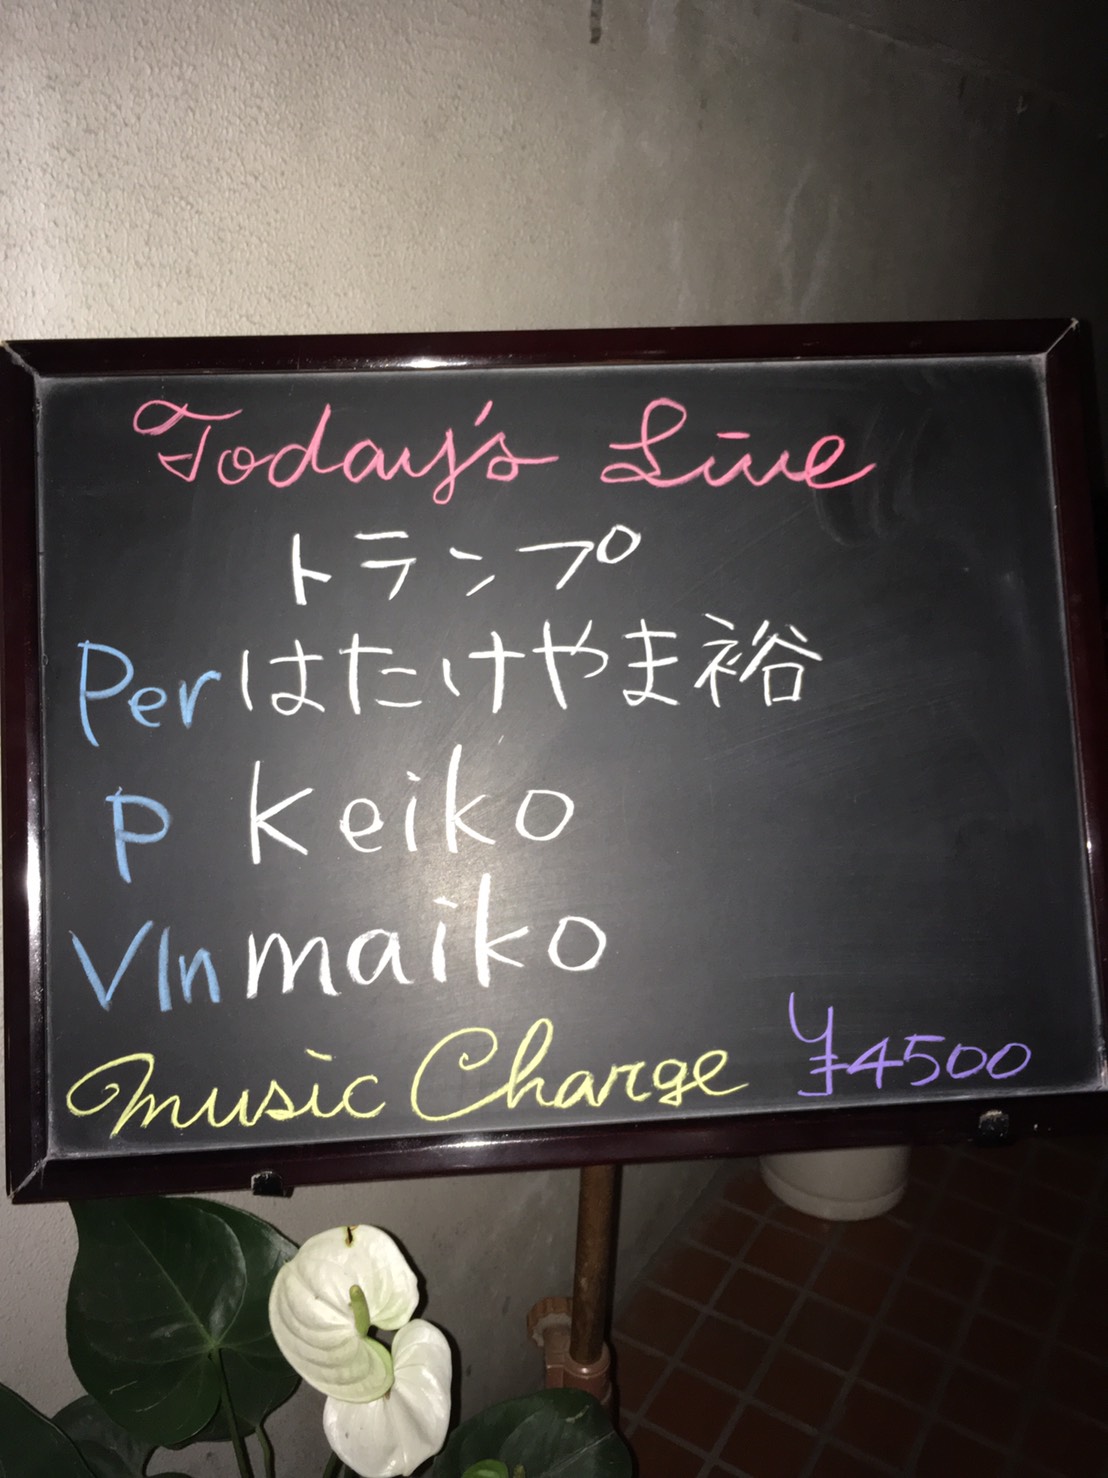 Today's Live
トランプ
Per はたけやま裕
P Keiko
Vln maiko
Music Charge ¥4500